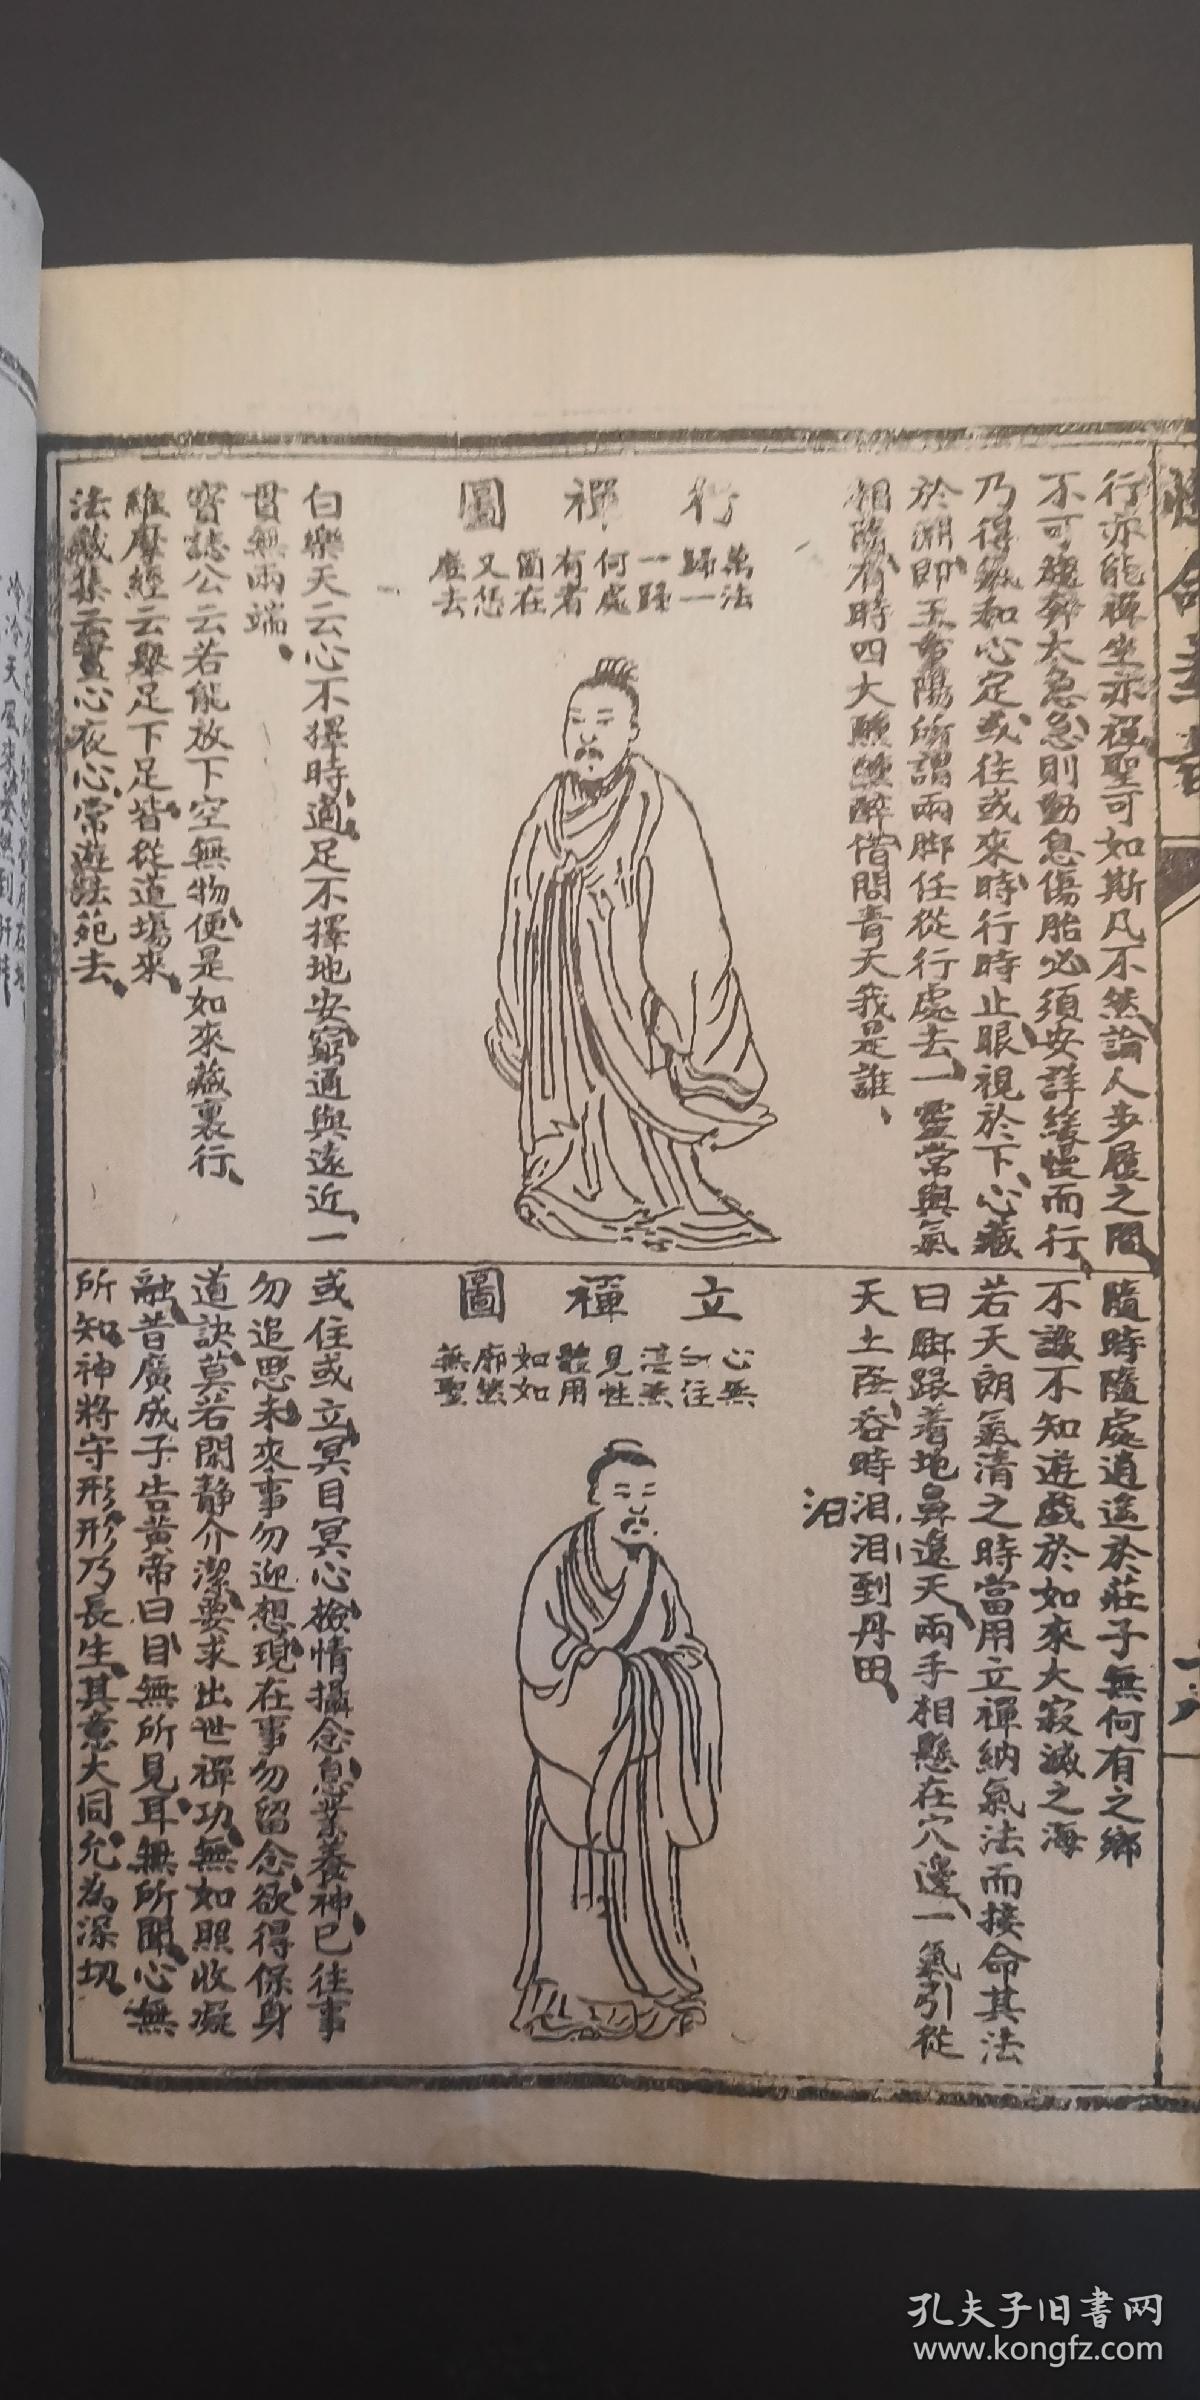 行亦能禪坐亦禪聖可如斯凡不然論人步履之間
不可趨奔太急急則動息傷胎必須安詳緩慢而行
乃得氣和心定或往或來時行時止眼視於下心藏
於淵即王重陽所謂兩脚任從行處去一靈常與氣
相隨有時四大醺醺醉借問青天我是誰
行禪圖
萬法
歸一
一歸
何處
有者
箇在
又恁
麼去
白樂天云心不擇時適足不擇地安窮通與遠近一
貫無兩端
寶誌公云若能放下空無物便是如來藏裏行
維摩經云舉足下足皆從道場來
法藏集云晝心夜心常遊法苑去
隨時隨處逍遙於莊子無何有之鄉
不識不知遊戲於如來大寂滅之海
若天朗氣清之時當用立禪納氣法而接命其法
曰脚跟着地鼻邊天兩手相懸在穴邊一氣引從
天上至吞時汨汨到丹田
汨
立禪圖
心無
所住
湛然
見性
體用
如如
廓然
無聖
或住或立冥目冥心檢情攝念息業養神已往事
勿追思未來事勿迎想現在事勿留念欲得保身
道訣莫若閑靜介潔要求出世禪功無如照收凝
融昔廣成子告黃帝曰目無所見耳無所聞心無
所知神將守形形乃長生其意大同允為深切
孔夫子旧书网
www.kongfz.com